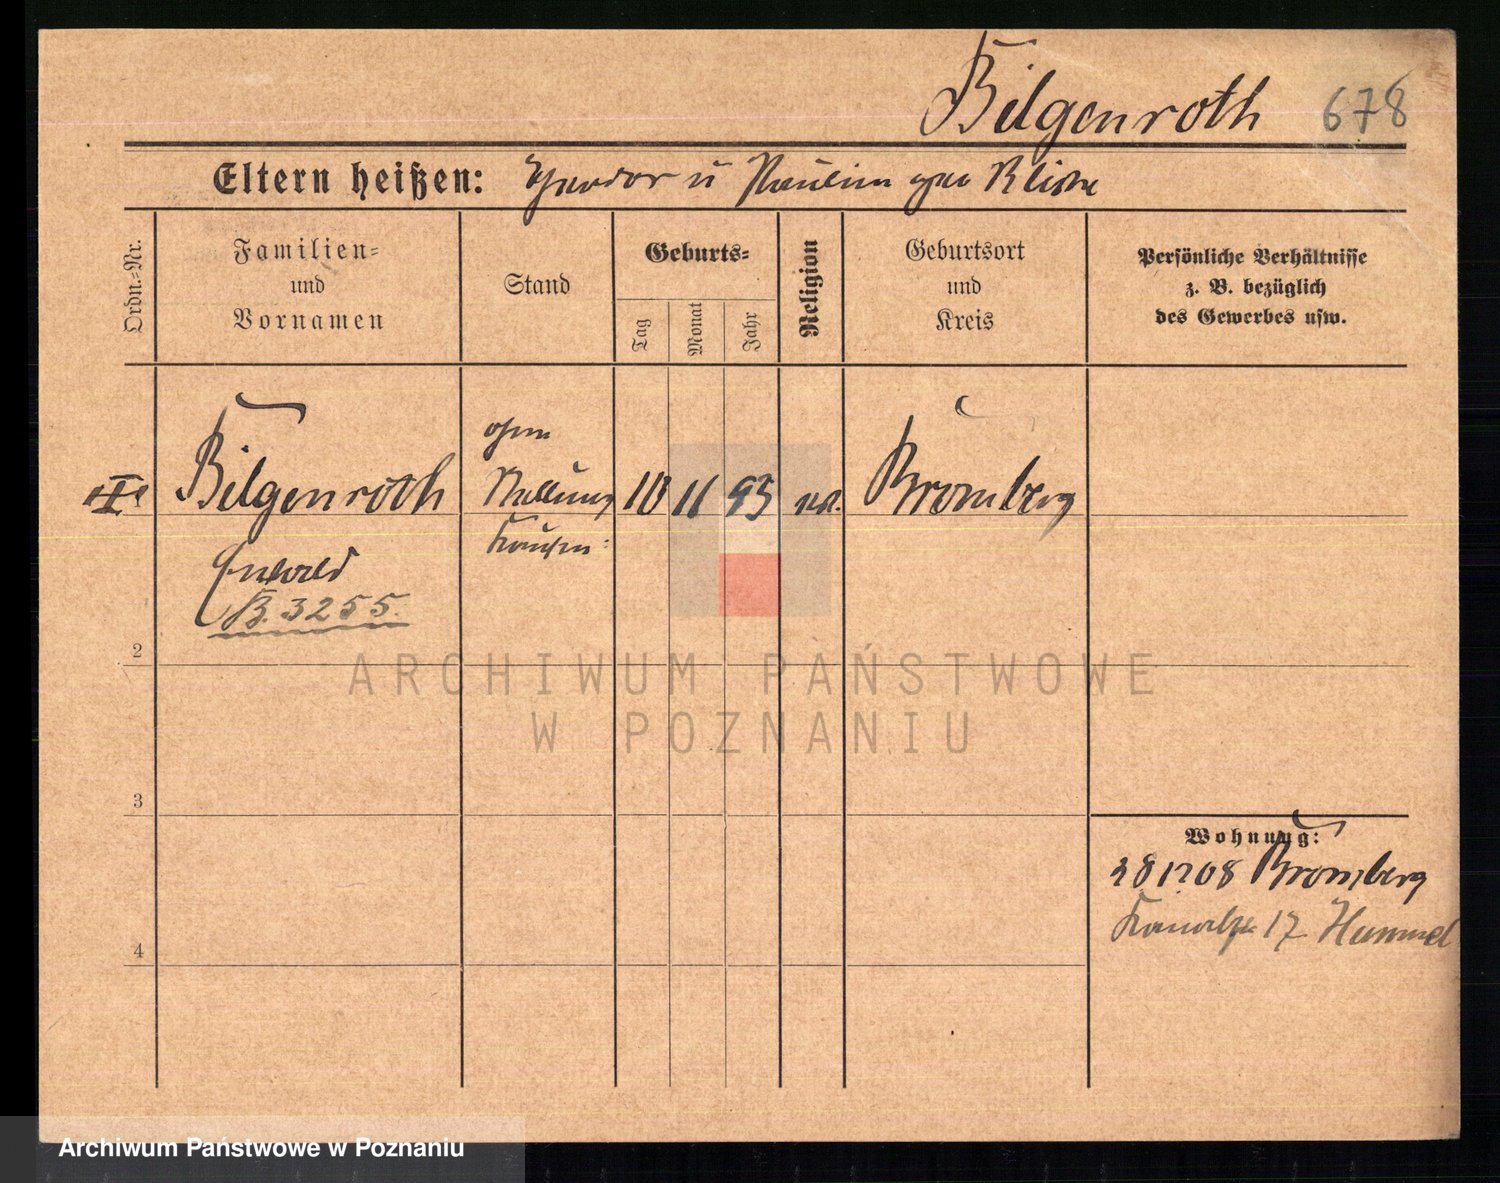 Bilgenroth 678
Eltern heißen: Theodor u Paulin geb
Ordn.-Nr.
Familien-
und
Vornamen
Stand
Geburts-
Tag
Monat
Jahr
Religion
Geburtsort
und
Kreis
Persönliche Verhältnisse
z. B. bezüglich
des Gewerbes usw.
ohne
Bilgenroth Stellung 10 11 93 Bromberg
Ewald
B. 3255.
2
ARCHIWUM PAŃSTWOWE
W POZNANIU
3
Wohnung:
Bromberg
17 Hummel
4
Archiwum Państwowe w Poznaniu